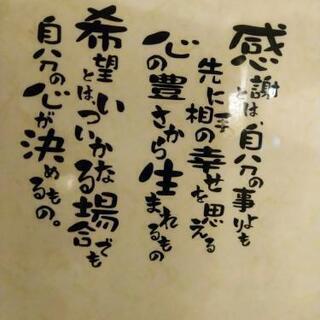 感謝とは、自分の事よりも
先に相手の幸せを思える
心の豊さから生まれるもの
希望とは、いついかなる場合でも
自分の心が決めるもの。